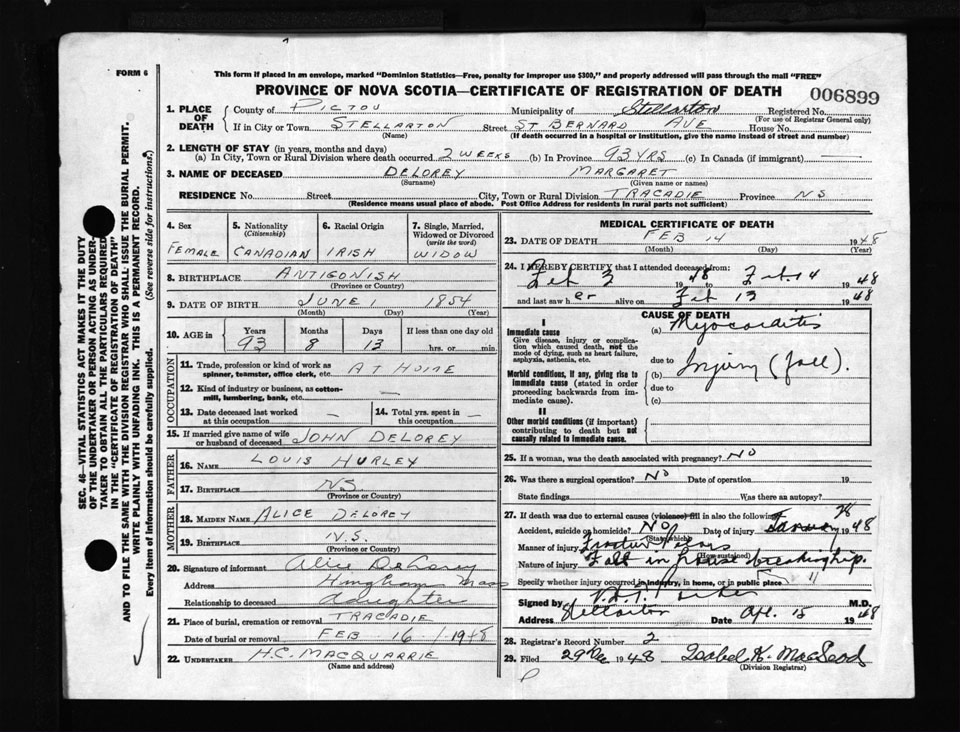 FORM 6
This form if placed in an envelope, marked "Dominion Statistics—Free, penalty for improper use $300," and properly addressed will pass through the mail "FREE"
PROVINCE OF NOVA SCOTIA—CERTIFICATE OF REGISTRATION OF DEATH
006899
1. PLACE OF DEATH County of PICTOU Municipality of Stellarton Registered No.
(For use of Registrar General only)
If in City or Town STELLARTON Street ST BERNARD AVE House No.
(Name) (If death occurred in a hospital or institution, give the name instead of street and number)
2. LENGTH OF STAY (in years, months and days)
(a) In City, Town or Rural Division where death occurred 2 WEEKS (b) In Province 93 YRS (c) In Canada (if immigrant) —
3. NAME OF DECEASED DELOREY MARGARET
(Surname) (Given name or names)
RESIDENCE No. Street City, Town or Rural Division TRACADIE Province NS
(Residence means usual place of abode. Post Office Address for residents in rural parts not sufficient)
4. Sex FEMALE
5. Nationality (Citizenship) CANADIAN
6. Racial Origin IRISH
7. Single, Married, Widowed or Divorced (write the word) WIDOW
8. BIRTHPLACE ANTIGONISH
(Province or Country)
9. DATE OF BIRTH JUNE 1 1854
(Month) (Day) (Year)
10. AGE in Years 93 Months 8 Days 13 If less than one day old hrs. or min.
OCCUPATION
11. Trade, profession or kind of work as spinner, teamster, office clerk, etc. AT HOME
12. Kind of industry or business, as cotton-mill, lumbering, bank, etc. —
13. Date deceased last worked at this occupation —
14. Total yrs. spent in this occupation —
15. If married give name of wife or husband of deceased JOHN DELOREY
FATHER
16. NAME LOUIS HURLEY
17. BIRTHPLACE NS.
(Province or Country)
MOTHER
18. MAIDEN NAME ALICE DELOREY
19. BIRTHPLACE N.S.
(Province or Country)
20. Signature of informant Alice Delorey
Address Hingham Mass
Relationship to deceased daughter
21. Place of burial, cremation or removal TRACADIE
Date of burial or removal FEB 16 1948
22. UNDERTAKER H.C. MACQUARRIE
(Name and address)
MEDICAL CERTIFICATE OF DEATH
23. DATE OF DEATH FEB 14 1948
(Month) (Day) (Year)
24. I HEREBY CERTIFY that I attended deceased from:
Feb 3 1948 to Feb 14 1948
and last saw her alive on Feb 13 1948
CAUSE OF DEATH
I
Immediate cause (a) Myocarditis
Give disease, injury or complication which caused death, not the mode of dying, such as heart failure, asphyxia, asthenia, etc.
due to
Morbid conditions, if any, giving rise to immediate cause (stated in order proceeding backwards from immediate cause).
(b) Injury (fall).
due to
(c)
II
Other morbid conditions (if important) contributing to death but not causally related to immediate cause.
25. If a woman, was the death associated with pregnancy? NO
26. Was there a surgical operation? NO Date of operation 19
State findings Was there an autopsy?
27. If death was due to external causes (violence) fill in also the following:
Accident, suicide or homicide? NO Date of injury January 28 1948
(State which)
Manner of injury Fracture
(How sustained)
Nature of injury Fall in house
Specify whether injury occurred in industry, in home, or in public place
Signed by M.D.
Address Stellarton Date Apr. 15 1948
28. Registrar's Record Number 2
29. Filed 29 Dec 1948 Isabel K. MacLeod
(Division Registrar)
SEC. 46—VITAL STATISTICS ACT MAKES IT THE DUTY
OF THE UNDERTAKER OR PERSON ACTING AS UNDER-
TAKER TO OBTAIN ALL THE PARTICULARS REQUIRED
IN THE "CERTIFICATE OF REGISTRATION OF DEATH"
AND TO FILE THE SAME WITH THE DIVISION REGISTRAR WHO SHALL ISSUE THE BURIAL PERMIT.
WRITE PLAINLY WITH UNFADING INK. THIS IS A PERMANENT RECORD.
Every item of information should be carefully supplied. (See reverse side for instructions.)